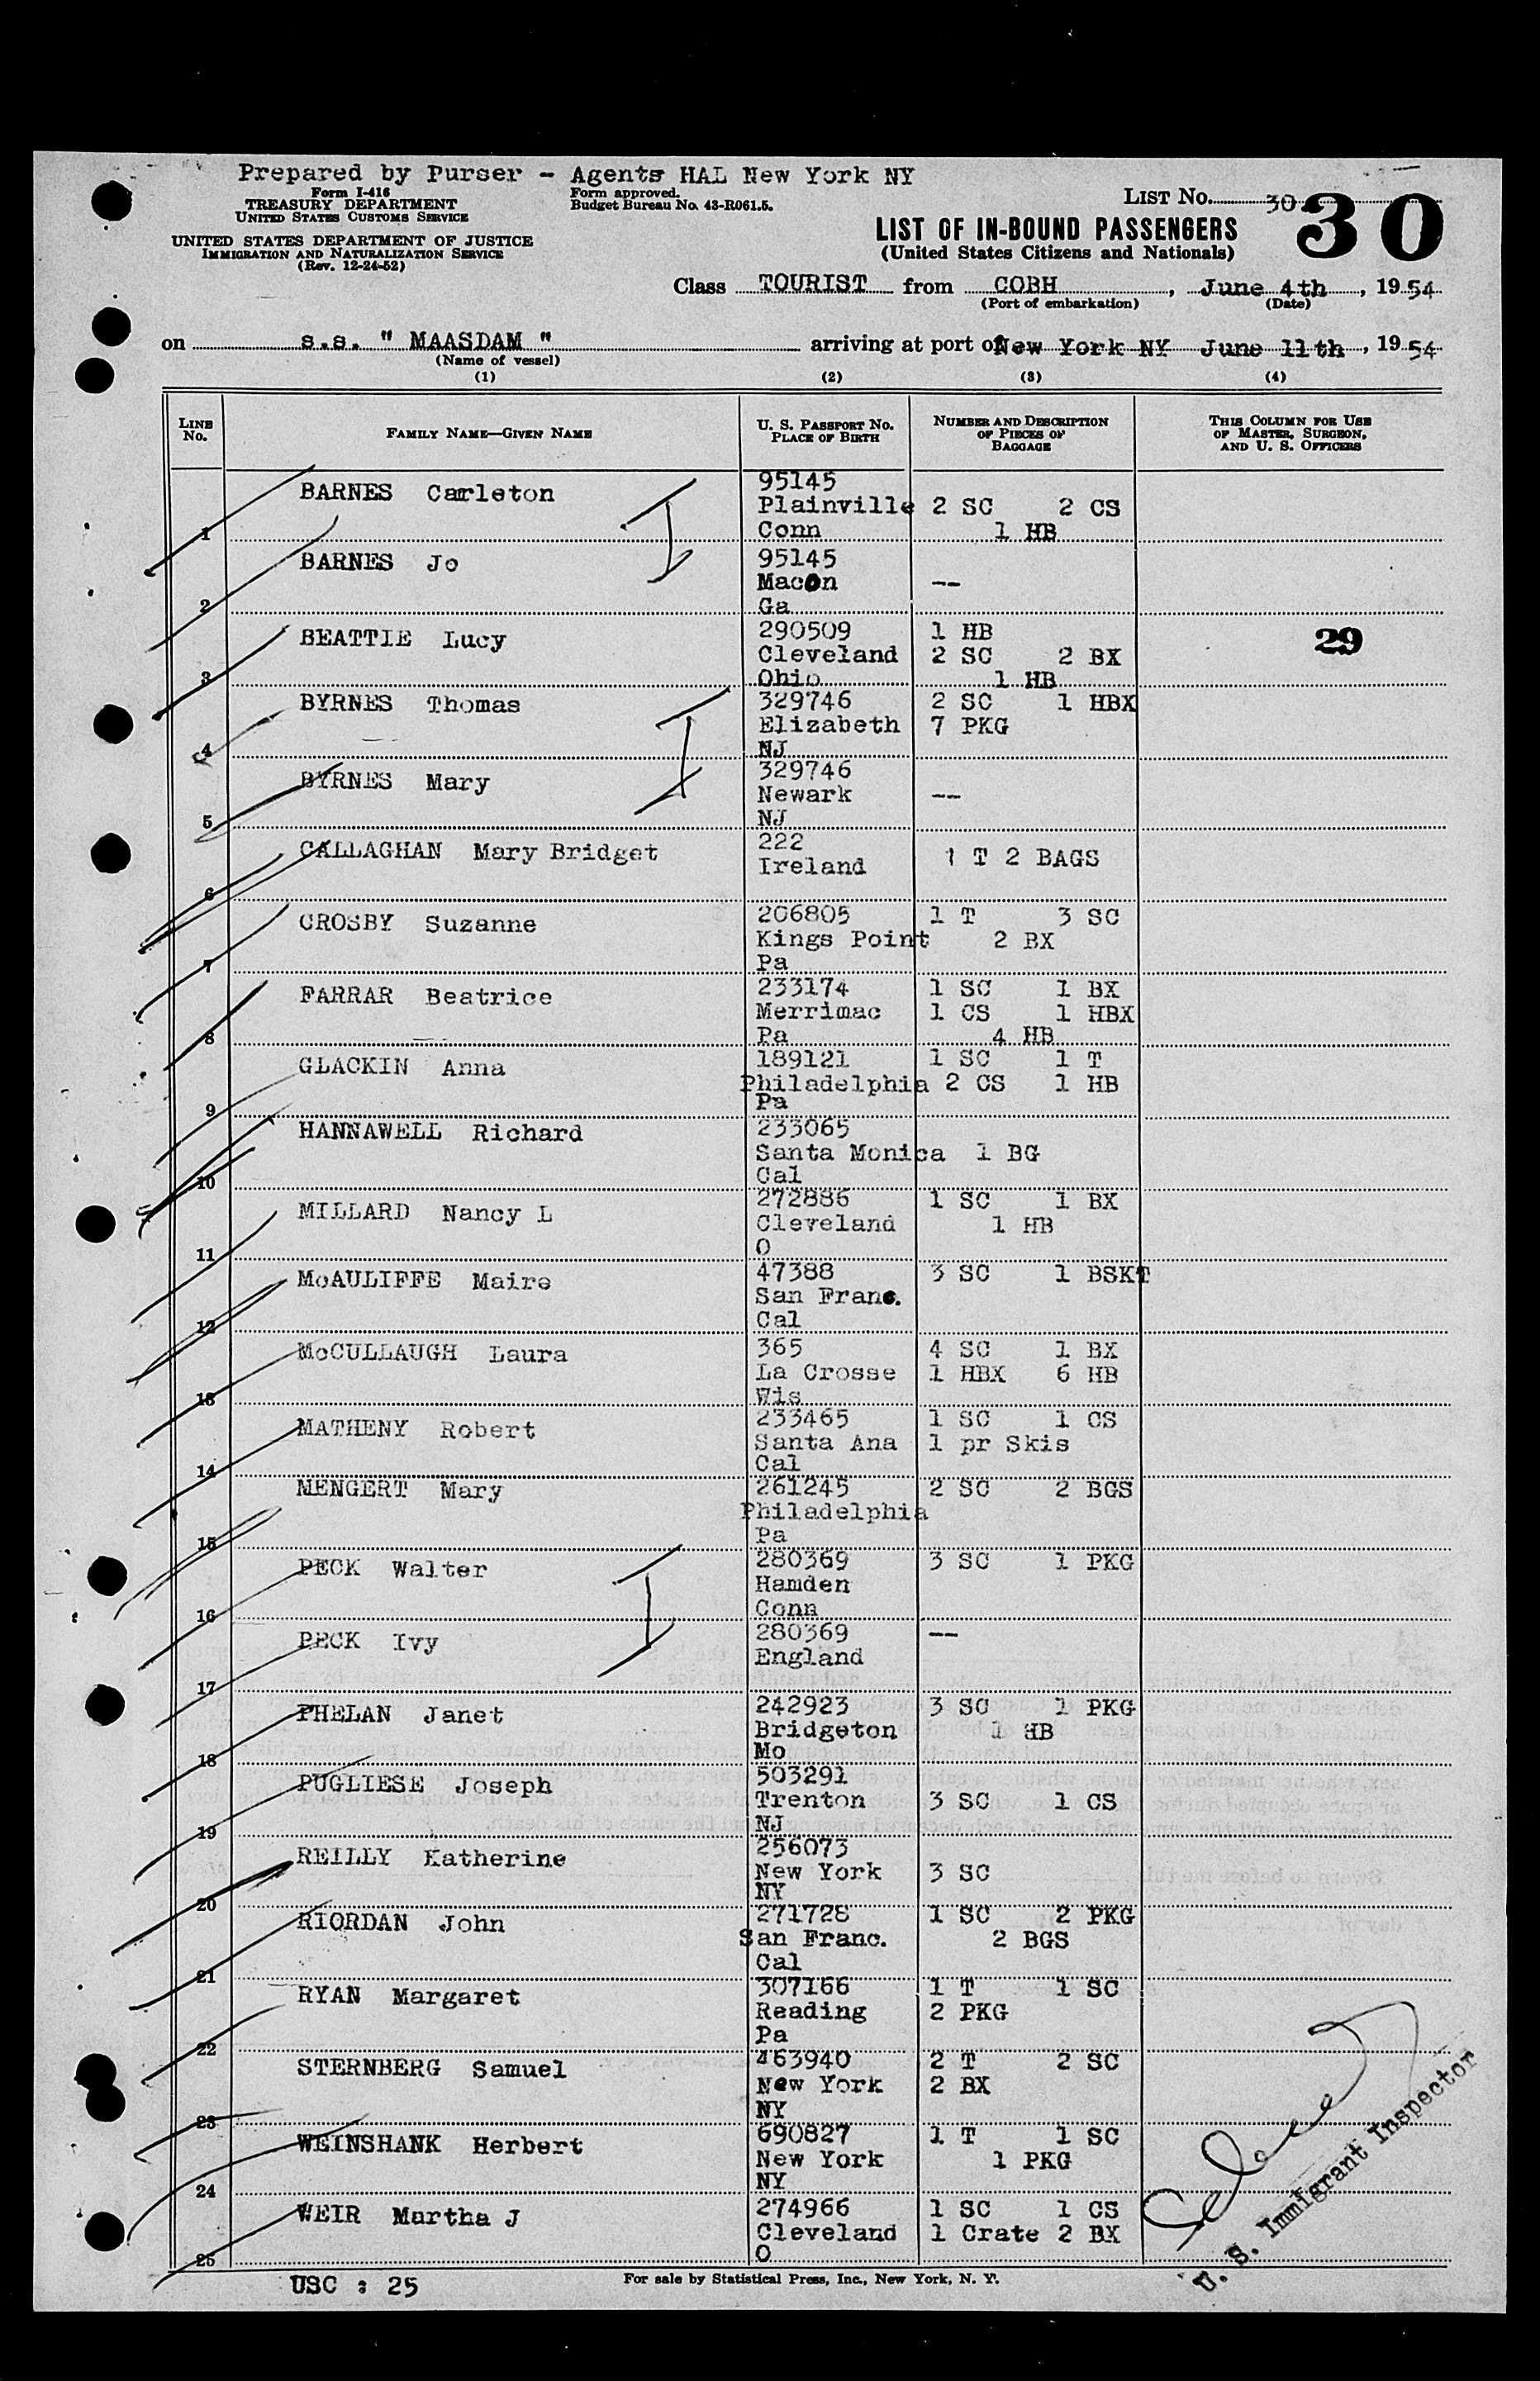 Prepared by Purser - Agents HAL New York NY
Form I-416
TREASURY DEPARTMENT
UNITED STATES CUSTOMS SERVICE
Form approved.
Budget Bureau No. 43-R061.5.
LIST NO. 30
30
UNITED STATES DEPARTMENT OF JUSTICE
IMMIGRATION AND NATURALIZATION SERVICE
(Rev. 12-24-52)
LIST OF IN-BOUND PASSENGERS
(United States Citizens and Nationals)
Class TOURIST from COBH, June 4th, 1954
(Port of embarkation) (Date)
on s.s. " MAASDAM " arriving at port of New York NY June 11th, 1954
(Name of vessel)
(1) (2) (3) (4)
LINE No.
FAMILY NAME—GIVEN NAME
U. S. PASSPORT NO.
PLACE OF BIRTH
NUMBER AND DESCRIPTION
OF PIECES OF
BAGGAGE
THIS COLUMN FOR USE
OF MASTER, SURGEON,
AND U. S. OFFICERS
95145
BARNES Carleton Plainville 2 SC 2 CS
1 Conn 1 HB
95145
BARNES Jo Macon --
2 Ga
290509 1 HB
BEATTIE Lucy Cleveland 2 SC 2 BX 29
3 Ohio 1 HB
BYRNES Thomas 329746 2 SC 1 HBX
Elizabeth 7 PKG
4 NJ
329746
BYRNES Mary Newark --
5 NJ
222
CALLAGHAN Mary Bridget Ireland 1 T 2 BAGS
6
206805 1 T 3 SC
CROSBY Suzanne Kings Point 2 BX
7 Pa
233174 1 SC 1 BX
FARRAR Beatrice Merrimac 1 CS 1 HBX
8 Pa 4 HB
189121 1 SC 1 T
GLACKIN Anna Philadelphia 2 CS 1 HB
9 Pa
HANNAWELL Richard 233065
Santa Monica 1 BG
10 Cal
272886 1 SC 1 BX
MILLARD Nancy L Cleveland 1 HB
11 O
McAULIFFE Maire 47388 3 SC 1 BSKT
San Franc.
12 Cal
McCULLAUGH Laura 365 4 SC 1 BX
La Crosse 1 HBX 6 HB
13 Wis
233465 1 SC 1 CS
MATHENY Robert Santa Ana 1 pr Skis
14 Cal
MENGERT Mary 261245 2 SC 2 BGS
Philadelphia
15 Pa
PECK Walter 280369 3 SC 1 PKG
Hamden
16 Conn
PECK Ivy 280369 --
England
17
PHELAN Janet 242923 3 SC 1 PKG
Bridgeton 1 HB
18 Mo
PUGLIESE Joseph 503291
Trenton 3 SC 1 CS
19 NJ
REILLY Katherine 256073
New York 3 SC
20 NY
RIORDAN John 271728 1 SC 2 PKG
San Franc. 2 BGS
21 Cal
RYAN Margaret 307166 1 T 1 SC
Reading 2 PKG
22 Pa
STERNBERG Samuel 463940 2 T 2 SC
New York 2 BX
23 NY
WEINSHANK Herbert 690827 1 T 1 SC
New York 1 PKG
24 NY
WEIR Martha J 274966 1 SC 1 CS
Cleveland 1 Crate 2 BX
25 O
U. S. Immigrant Inspector
USC : 25
For sale by Statistical Press, Inc., New York, N. Y.